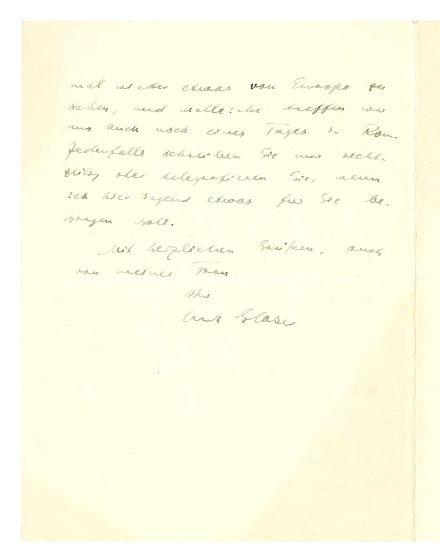 mal wieder etwas von Europa zu
sehen, und vielleicht treffen wir
uns auch noch eines Tages in Rom.
Jedenfalls schreiben Sie mir recht-
zeitig oder telegrafieren Sie, wenn
ich hier irgend etwas für Sie be-
sorgen soll.
Mit herzlichen Grüßen, auch
von meiner Frau
Ihr
Curt Glaser